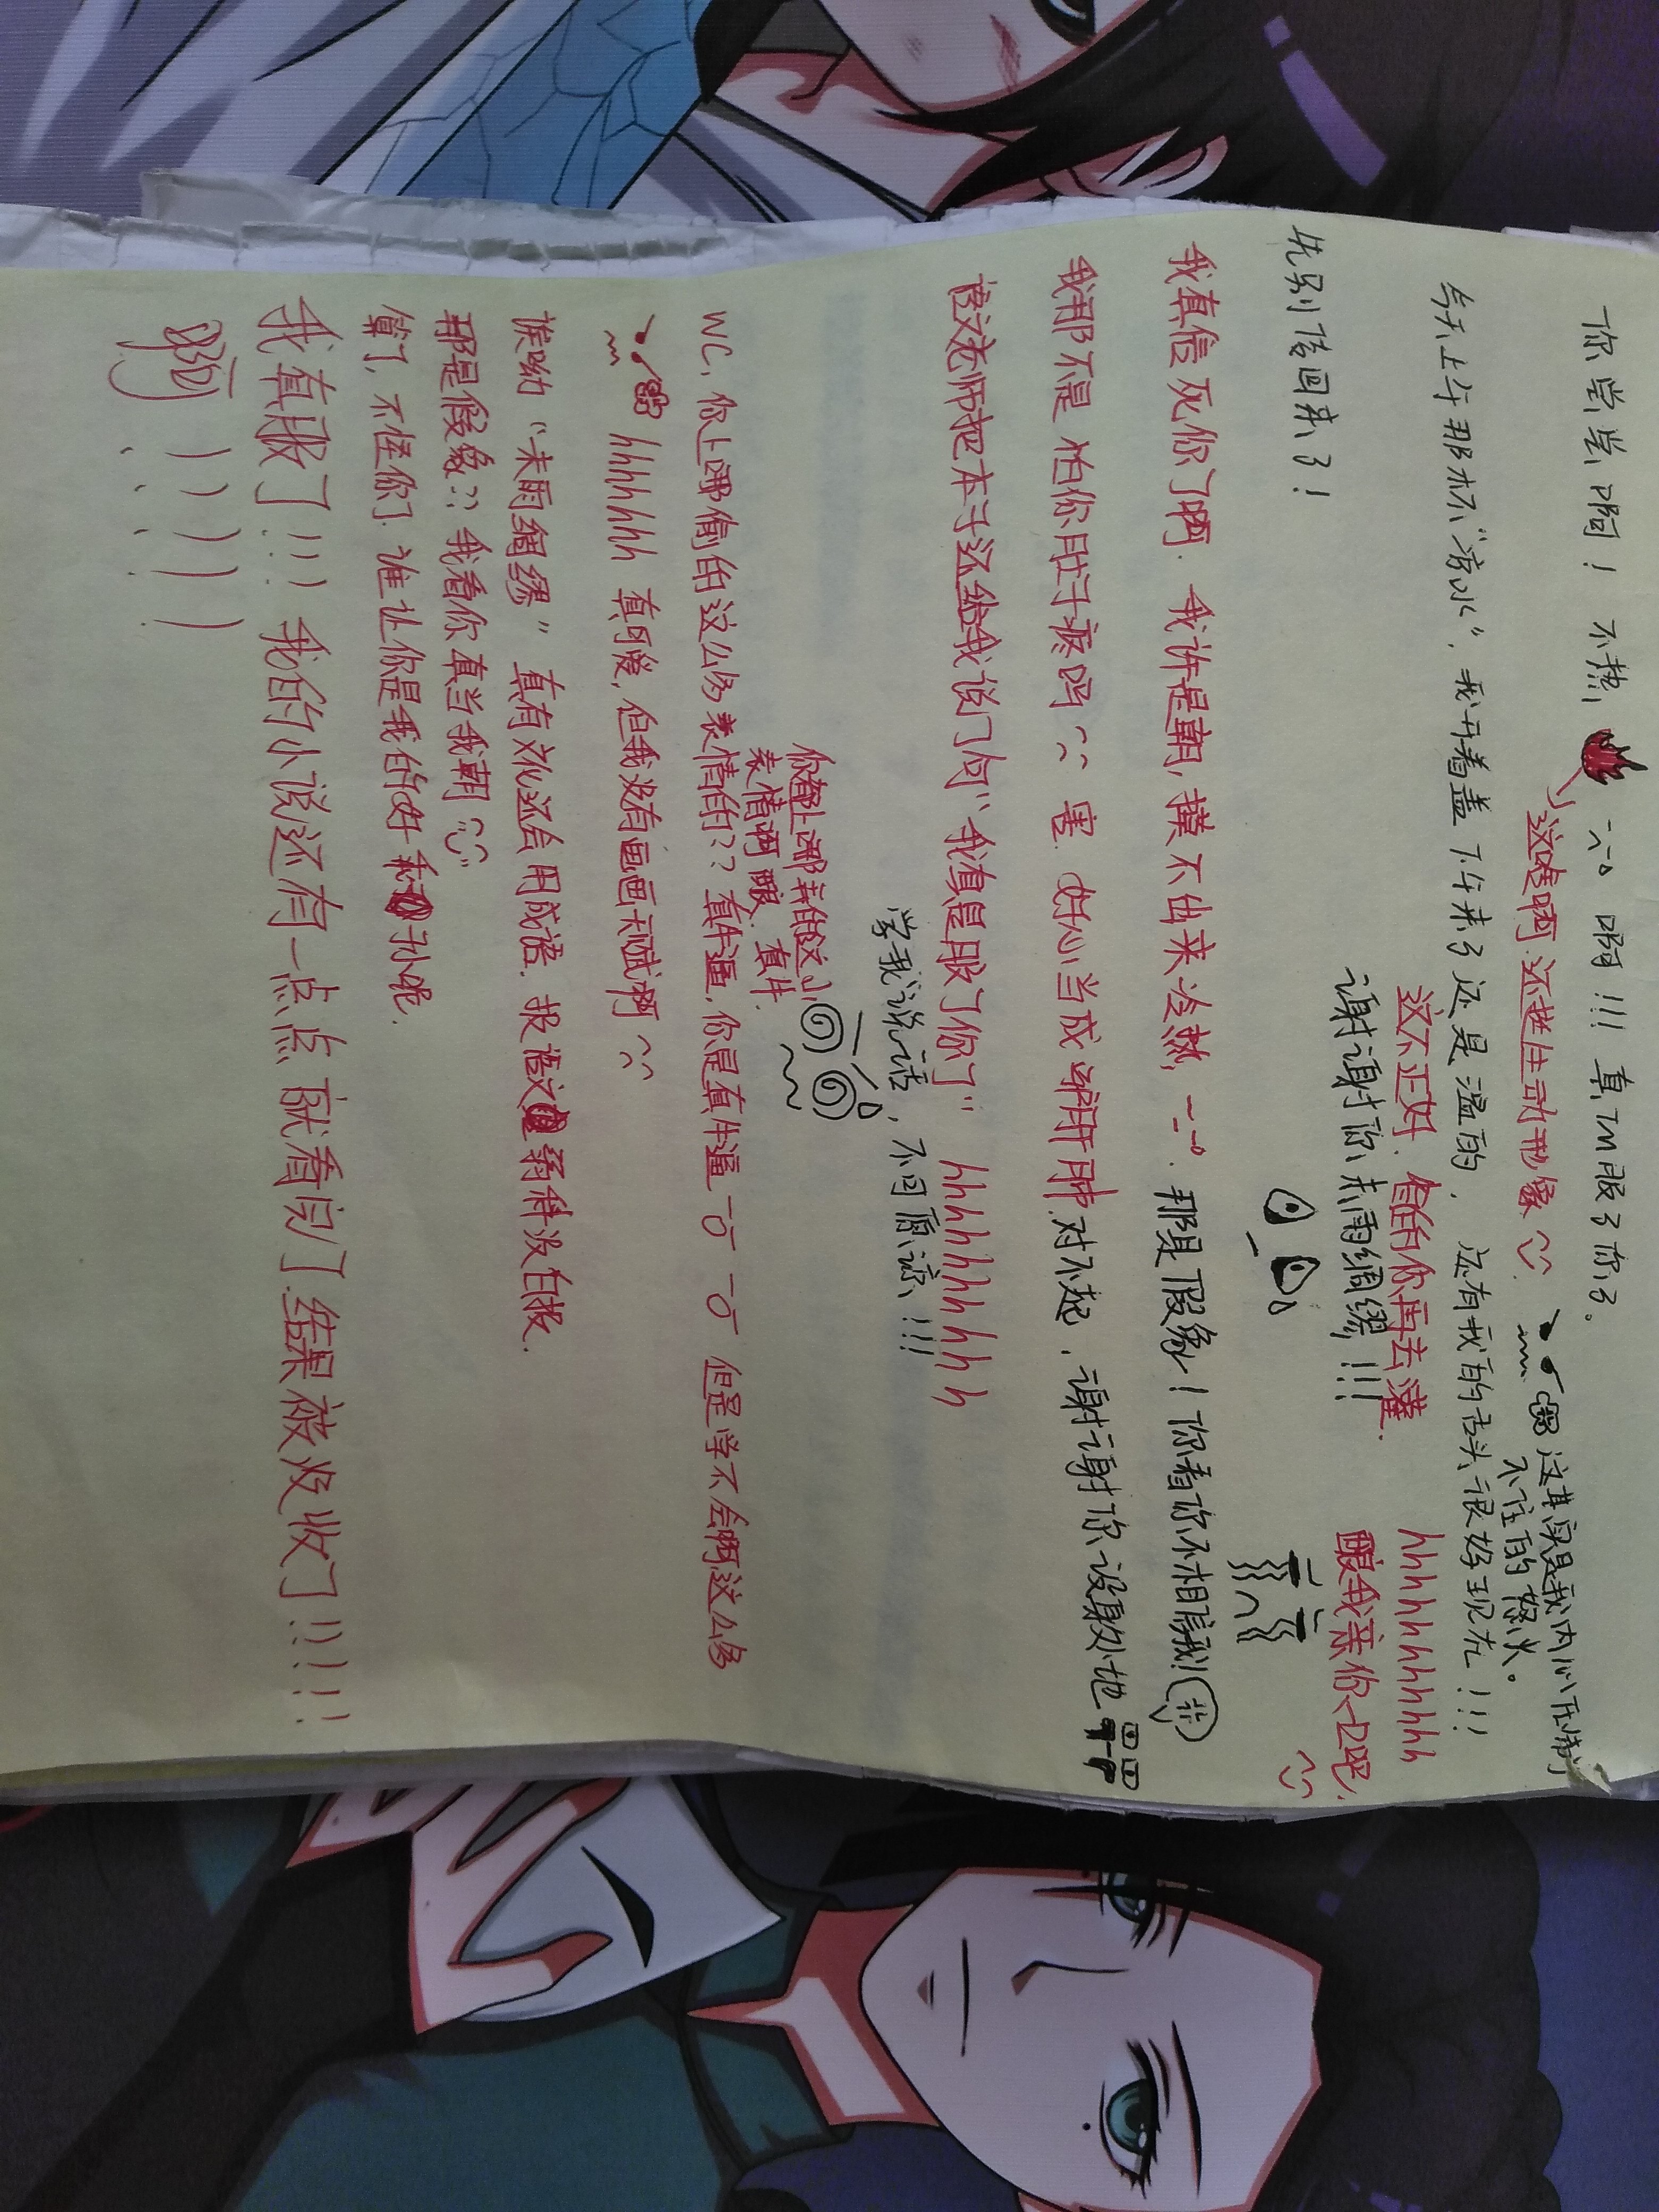 你尝尝啊！不热 啊！！！真TM服了你了。
这啥啊.还挺生动形象
这其实是我内心压制
不住的怒火。
今天上午那杯“凉水”，我开着盖下午来了还是温的，还有我的舌头很好现在！！！
这不正好.省的你再去灌.
hhhhhhhhhhh
谢谢你未雨绸缪！！！
我亲你一口吧.
先别传回来了！
我真信死你了啊.我许是朝,摸不出来冷热, 那是假象！你看你不相信我！
我那不是怕你肚子疼吗 害.好心当成驴肝肺.对不起，谢谢你设身处地
语文老师把本子还给我说了句“我真是服了你了” hhhhhhhhh
学我说话，不可原谅！！！
你都上哪弄的这小
表情啊 .真牛.
WC,你上哪偷的这么多表情的??真牛逼,你是真牛逼 但是学不会啊,这么多
hhhhhhh 真可爱,但我没有画画天赋啊
诶呦“未雨绸缪”真有文化还会用成语.报语文弱科没白报.
那是假象??我看你真当我朝
算了,不怪你了.谁让你是我的好 子小呢.
我真服了!!! 我的小说还有一点点就看完了.结果被没收了!!!!!
啊!!!!!